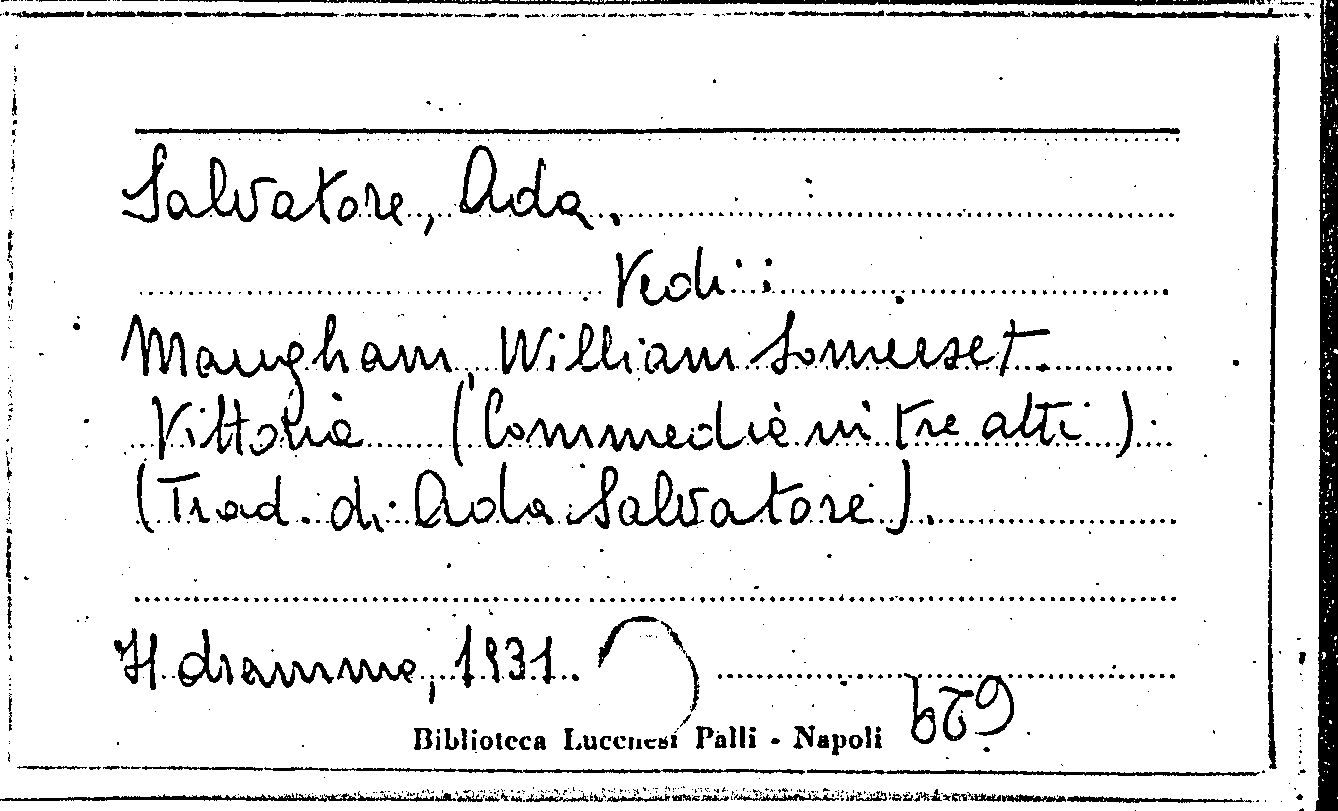 Salvatore, Ada.
Vedi:
Maugham, William Somerset.
Vittoria (Commedia in tre atti).
(Trad. di Ada Salvatore).
Il dramma, 1931.
Biblioteca Lucchesi Palli - Napoli